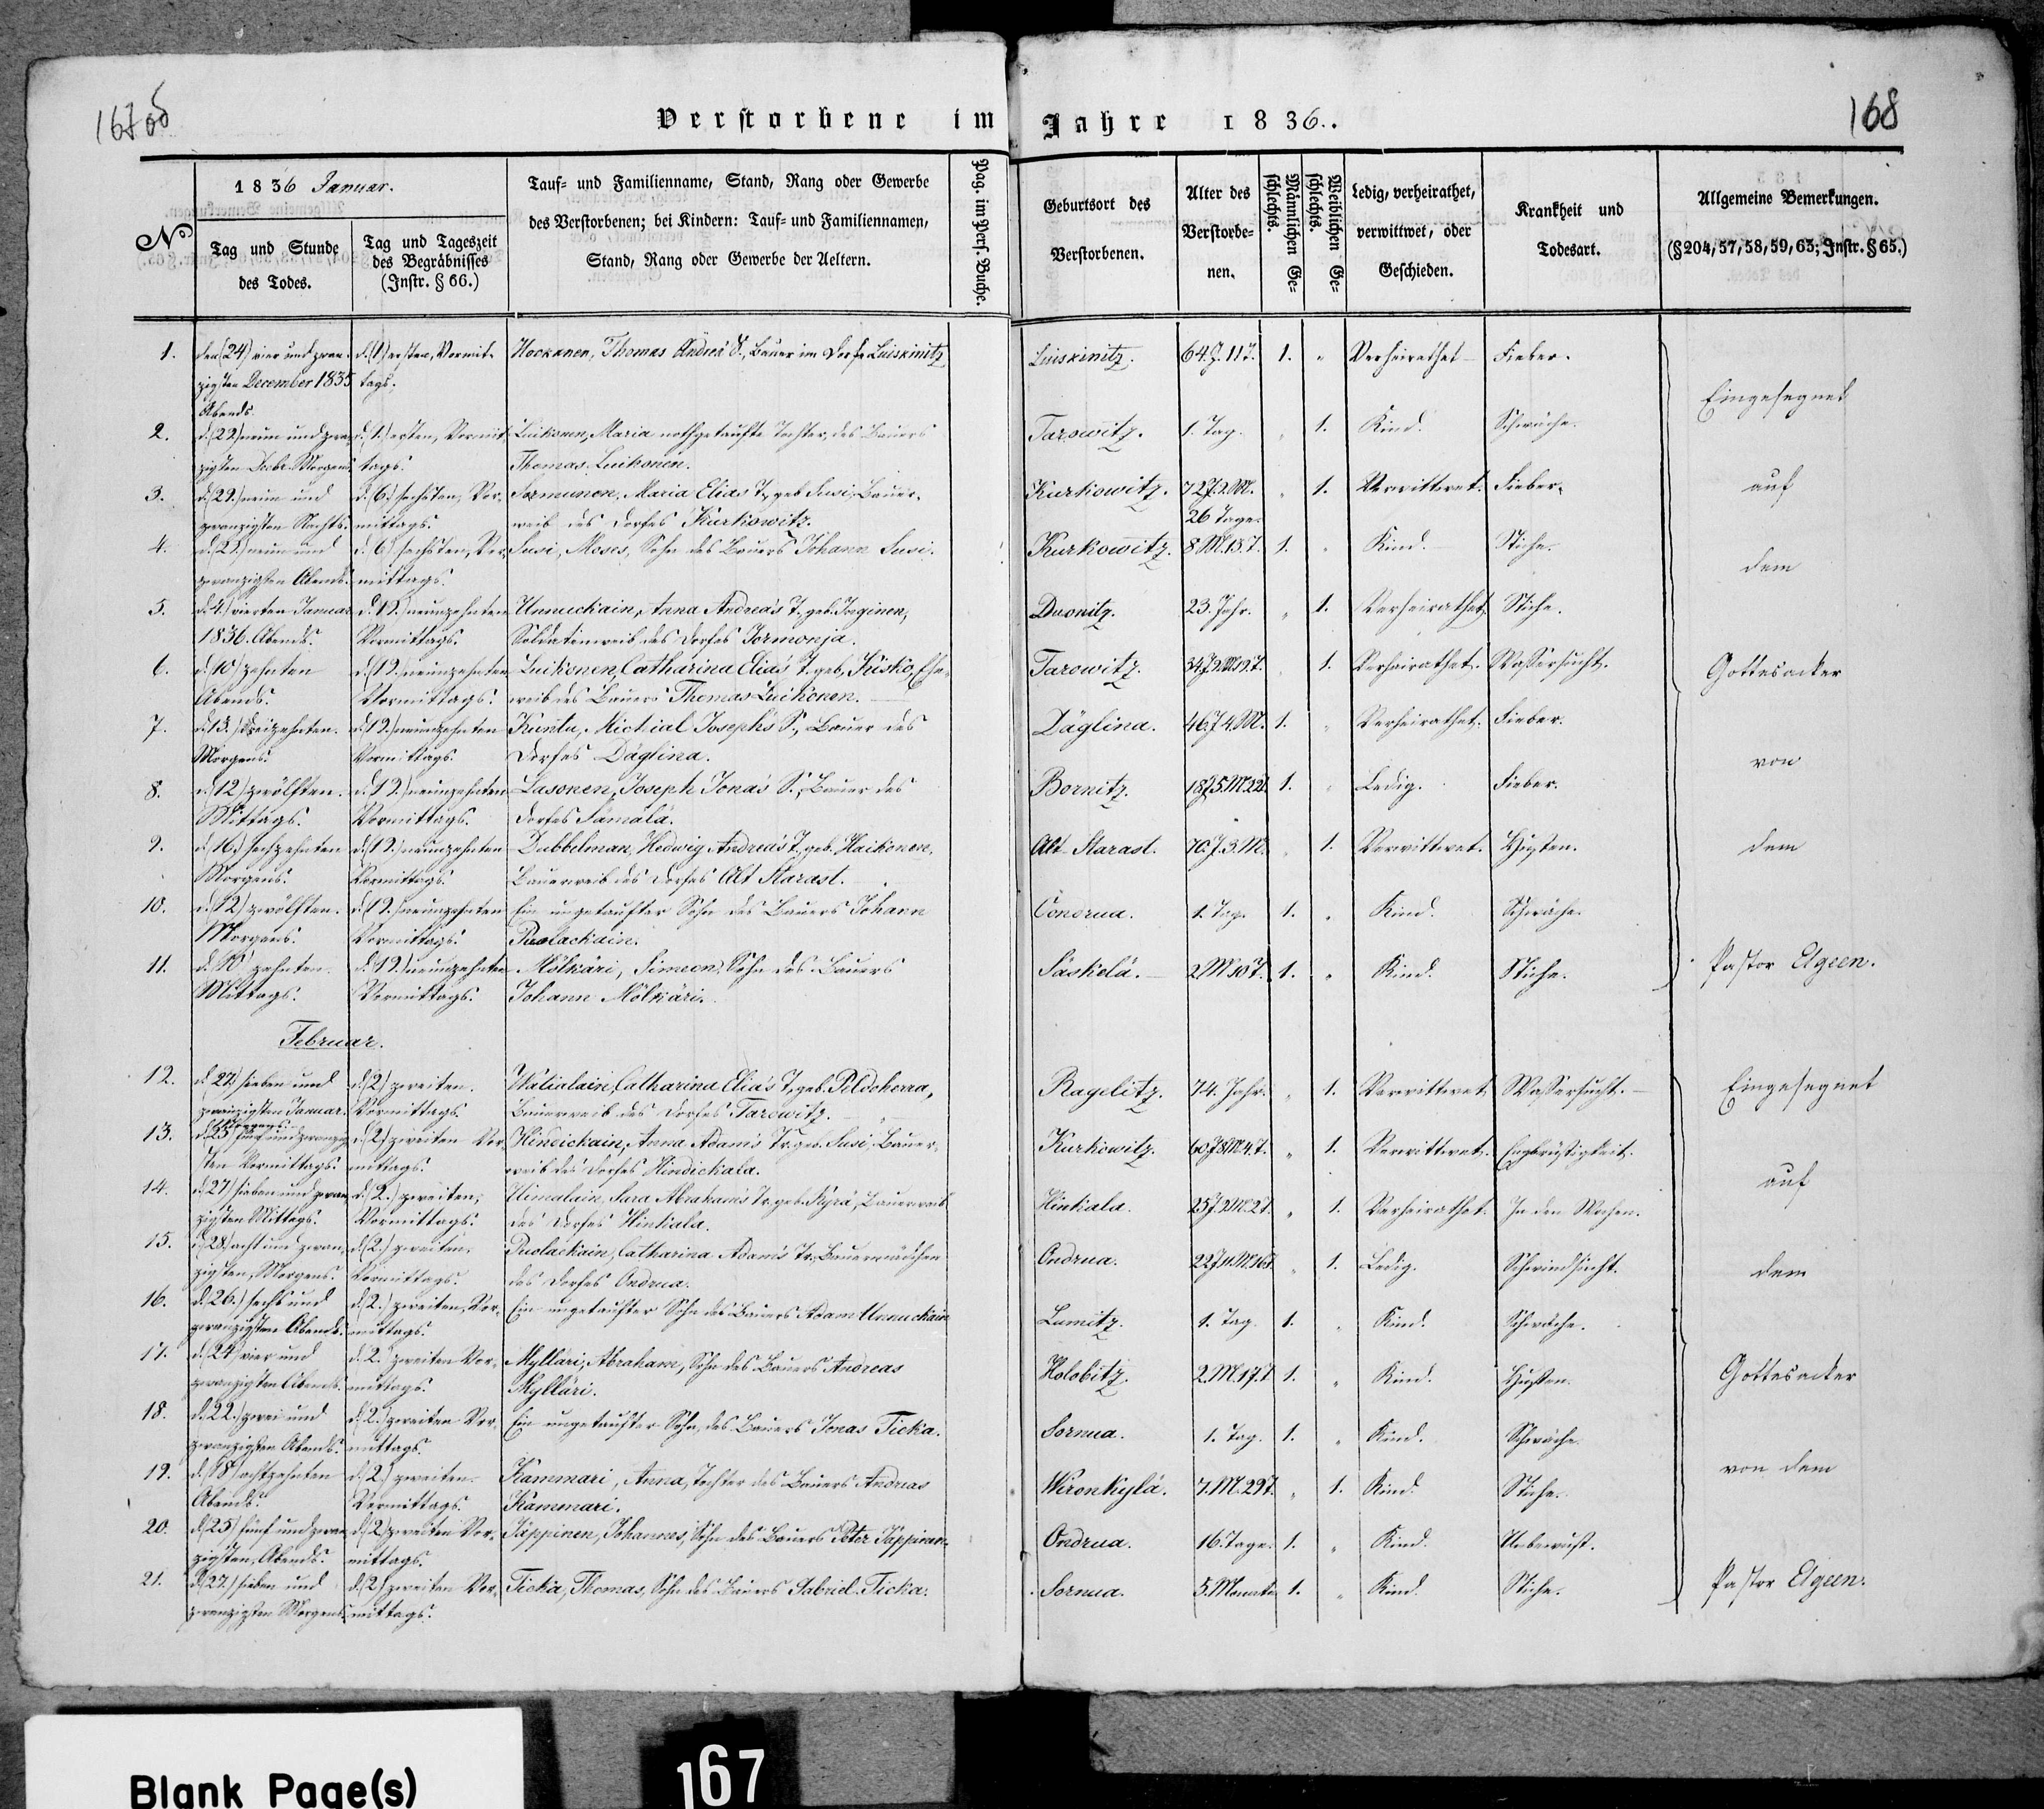 167 об
168
Verstorbene im Jahre 1836.
1836 Januar.
№
Tag und Stunde des Todes.
Tag und Tageszeit des Begräbnisses (Instr. § 66.)
Tauf= und Familienname, Stand, Rang oder Gewerbe
des Verstorbenen; bei Kindern: Tauf= und Familiennamen,
Stand, Rang oder Gewerbe der Aeltern.
Pag. im Pers. Buche.
Geburtsort des Verstorbenen.
Alter des Verstorbe-nen.
Männlichen Ge-schlechts.
Weiblichen Ge-schlechts.
Ledig, verheirathet, verwittwet, oder Geschieden.
Krankheit und Todesart.
Allgemeine Bemerkungen.
(§ 204, 57, 58, 59, 63; Instr. § 65.)
1. den (24) vier und zwan- d. (1) ersten, Vormit- Hockanen, Thomas Andreä S., Bauer im Dorfe Luiskinitz Luiskinitz. 64. J. 11 T. 1. „ Verheirathet Fieber.
zigsten December 1835 tags.
Abends.
2. d. (29) neun und zwan- d. (1.) ersten, Vormit- Luikonen, Maria nothgetaufte Tochter, des Bauers Tarowitz. 1. Tag. „ 1. Kind. Schwäche.
zigsten Decbr. Morgens. tags. Thomas Luikonen.
3. d. (29.) neun und d. (6.) sechsten, Vor- Sormunen, Maria Elias T., geb. Susi, Bauer- Kurkowitz. 72 J. 2. M. „ 1. Verwittwet. Fieber.
zwanzigsten Nachts. mittags. weib des Dorfes Kurkowitz. 26 Tage.
4. d. (29.) neun und d. 6) sechsten, Vor- Susi, Moses, Sohn des Bauers Johann Susi. Kurkowitz. 8 M. 15. T. 1. „ Kind. Stiche.
zwanzigsten Abends. mittags.
5. d. 4.) vierten Januar d. 19.) neunzehnten Unnuckain, Anna Andreäs T., geb. Inginen, Duonitz. 23. Jahr. „ 1. Verheirathet. Stiche.
1836. Abends. Vormittags. Soldatenweib des Dorfes Jormonja.
6. d. 10) zehnten d. (19.) neunzehnten Luikonen, Catharina Elias T. geb. Küsko, Ehe- Tarowitz. 34 J. 9. M. 19. T. „ 1. Verheirathet. Wassersucht.
Abends. Vormittags. weib des Bauers Thomas Luikonen.
7. d. 13.) dreizehnten. d. 19.) neunzehnten Kuntu, Michial Josephs S., Bauer des Däglina. 46. J. 4. M. 1. „ Verheirathet. Fieber.
Morgens. Vormittags. Dorfes Däglina.
8. d. (12) zwölften. d. 19.) neunzehnten Lasonen, Joseph Jonas S., Bauer des Bornitz. 18 J. 5. M. 22 T. 1. „ Ledig. Fieber.
Mittags. Vormittags. Dorfes Sämälä.
9. d. (16.) sechzehnten d. (19.) neunzehnten Dubbelman, Hedwig Andreäs T., geb. Haikonen, Alt Starast. 70 J. 3. M. „ 1. Verwittwet. Husten.
Morgens. Vormittags. Bauerweib des Dorfes Alt Starast.
10. d. (12) zwölften. d. (19.) neunzehnten Ein ungetaufter Sohn des Bauers Johann Onorua. 1. Tag. 1. „ Kind. Schwäche.
Morgens. Vormittags. Puolackain.
11. d. 10) zehnten. d. (19.) neunzehnten Mölkäri, Simeon, Sohn des Bauers Säskelä. 2 M. 10 T. 1. „ Kind. Stiche.
Mittags. Vormittags. Johann Mölkäri.
Eingesegnet
auf
dem
Gottesacker
von
dem
Pastor Ageen.
Februar.
12. d. 27.) sieben und d. (2) zweiten. Wätialain, Catharina Elias T., geb. Peldoherra, Ragelitz. 74. Jahr. „ 1. Verwittwet Wassersucht.
zwanzigsten Januar. Vormittags. Bauerweib des Dorfes Tarowitz.
Morgens.
13. d. 25) fünf und zwanzig- d. (2) zweiten Vor- Hindickain, Anna Adams Tr. geb. Susi, Bauer- Kurkowitz. 60 J. 8 M. 4. T. „ 1. Verwittwet. Engbrüstigkeit.
sten Vormittags. mittags. weib des Dorfes Hindickala.
14. d. 27) sieben und zwan- d. 2.) zweiten, Himalain, Sara Abrahams Tr. geb. Kyrä, Bauerweib Hinkala. 25 J. 9 M. 2 T. „ 1. Verheirathet. In den Wochen.
zigsten Mittags. Vormittags. des Dorfes Hinkala.
15. d. (28) acht und zwan- d. (2.) zweiten. Puolackain, Catharina Adams Tr. Bauermädchen Ondrua. 22 J. 11. M. 16 T. „ 1. Ledig. Schwindsucht.
zigsten, Morgens. Vormittags. des Dorfes Ondrua.
16. d. 26.) sechs und d. (2.) zweiten, Vor- Ein ungetaufter Sohn des Bauers Adam Unnuckain Lumitz. 1. Tag. 1. „ Kind. Schwäche.
zwanzigsten Abends. mittags.
17. d. 24) vier und d. 2.) zweiten Vor- Mylläri, Abraham, Sohn des Bauers Andreas Holobitz. 2. M. 17. T. 1. „ Kind. Husten.
zwanzigsten Abends. mittags. Mylläri.
18. d. 22.) zwei und d. 2.) zweiten Vor- Ein ungetaufter Sohn, des Bauers Jonas Ticka. Sornua. 1. Tag. 1. „ Kind. Schwäche.
zwanzigsten Abends. mittags.
19. d. (18) achtzehnten d. (2.) zweiten. Kammari, Anna, Tochter des Bauers Andreas Wironkylä. 7. M. 29 T. „ 1. Kind. Stiche.
Abends. Vormittags. Kammari.
20. d. (25) fünf und zwan- d. (2) zweiten Vor- Jäppinen, Johannes, Sohn des Bauers Peter Jäppinen. Ondrua. 16. Tage. 1. „ Kind. Unbewust.
zigsten, Abends. mittags.
21. d. (27.) sieben und d. (2) zweiten Vor- Ticka, Thomas, Sohn des Bauers Gabriel Ticka. Sornua. 5. Monate 1. „ Kind. Stiche.
zwanzigsten Morgens. mittags.
Eingesegnet
auf
dem
Gottesacker
von dem
Pastor Ageen.
Blank Page(s)
167